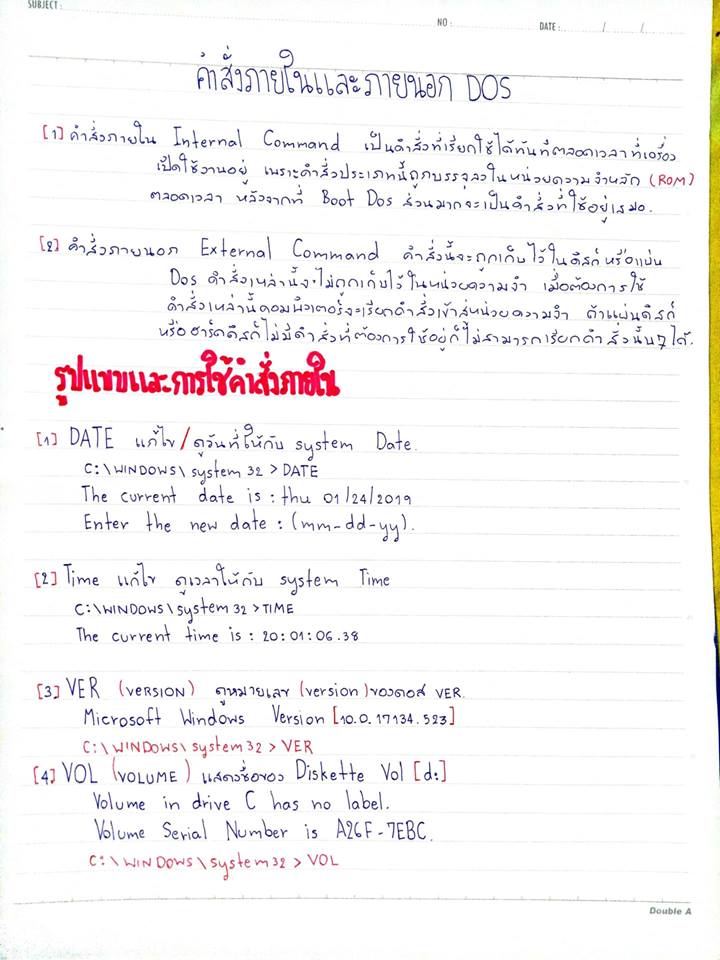 SUBJECT :
NO :
DATE : / /
คำสั่งภายในและภายนอก DOS
[1] คำสั่งภายใน Internal Command เป็นคำสั่งที่เรียกใช้ได้ทันทีตลอดเวลาที่เครื่อง
เปิดใช้งานอยู่ เพราะคำสั่งประเภทนี้ถูกบรรจุลงในหน่วยความจำหลัก (ROM)
ตลอดเวลา หลังจากที่ Boot Dos ส่วนมากจะเป็นคำสั่งที่ใช้อยู่เสมอ.
[2] คำสั่งภายนอก External Command คำสั่งนี้จะถูกเก็บไว้ในดิสก์ หรือแผ่น
Dos คำสั่งเหล่านี้จะไม่ถูกเก็บไว้ในหน่วยความจำ เมื่อต้องการใช้
คำสั่งเหล่านี้คอมพิวเตอร์จะเรียกคำสั่งเข้าสู่หน่วยความจำ ถ้าแผ่นดิสก์
หรือฮาร์ดดิสก์ไม่มีคำสั่งที่ต้องการใช้อยู่ก็ไม่สามารถเรียกคำสั่งนั้นๆ ได้.
รูปแบบและการใช้คำสั่งภายใน
[1] DATE แก้ไข/ดูวันที่ให้กับ system Date.
C:\WINDOWS\system 32 > DATE
The current date is : thu 01/24/2019
Enter the new date : (mm-dd-yy).
[2] Time แก้ไข ดูเวลาให้กับ system Time
C:\WINDOWS\system 32 > TIME
The current time is : 20:01:06.38
[3] VER (VERSION) ดูหมายเลข (version) ของดอส VER.
Microsoft Windows Version [10.0.17134.523]
C:\WINDOWS\system 32 > VER
[4] VOL (VOLUME) แสดงชื่อของ Diskette Vol [d:]
Volume in drive C has no label.
Volume Serial Number is A26F-7EBC.
C:\WINDOWS\system 32 > VOL
Double A